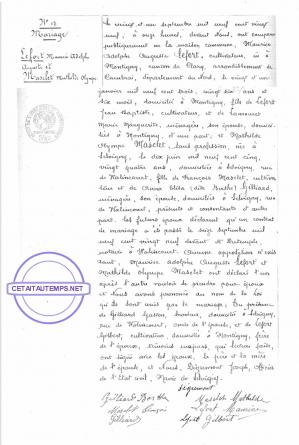 No 12
Mariage
Lefort Maurice Adolphe
Auguste et
Maselet Mathilde Olympe
Le vingt et un septembre mil neuf cent vingt
neuf, à onze heures, devant Nous, ont comparu
publiquement en la maison commune, Maurice
Adolphe Auguste Lefort, cultivateur, né à
Montigny, canton de Clary, arrondissement de
Cambrai, département du Nord, le vingt et un
janvier mil neuf cent trois, vingt six ans et
six mois, domicilié à Montigny, fils de Lefort
Jean Baptiste, cultivateur, et de
Marie Marguerite, ménagère, son épouse, domici-
liés à Montigny, d'une part, et Mathilde
Olympe Maselet, sans profession, née à
le dix juin mil neuf cent cinq,
vingt quatre ans, domiciliée à rue
de Walincourt, fille de François Maselet, cultiva-
teur et de (dite Berthe) Gilliard,
ménagère, son épouse, domiciliés à rue
de Walincourt, présents et consentants d'autre
part. Les futurs époux déclarent qu'un contrat
de mariage a été passé le seize septembre mil
neuf cent vingt neuf devant
notaire à Walincourt. Aucune opposition n'exis-
tant, Maurice Adolphe Auguste Lefort et
Mathilde Olympe Maselet ont déclaré l'un
après l'autre vouloir se prendre pour époux
et Nous avons prononcé au nom de la loi
qu'ils sont unis par le mariage. En présence
de Gilliard Gaston,
rue de Walincourt, oncle de l'épouse, et de Lefort
Gilbert, cultivateur, domicilié à Montigny, frère
de l'époux, témoins majeurs, qui lecture faite,
ont signé avec les époux, le père et la mère
de l'épouse, et Nous, Joseph, Officier
de l'état civil, Maire de
Gilliard Berthe
Maselet Mathilde
Maselet François
Lefort Maurice
Gilliard
Lefort Gilbert
CETAITAUTEMPS.NET